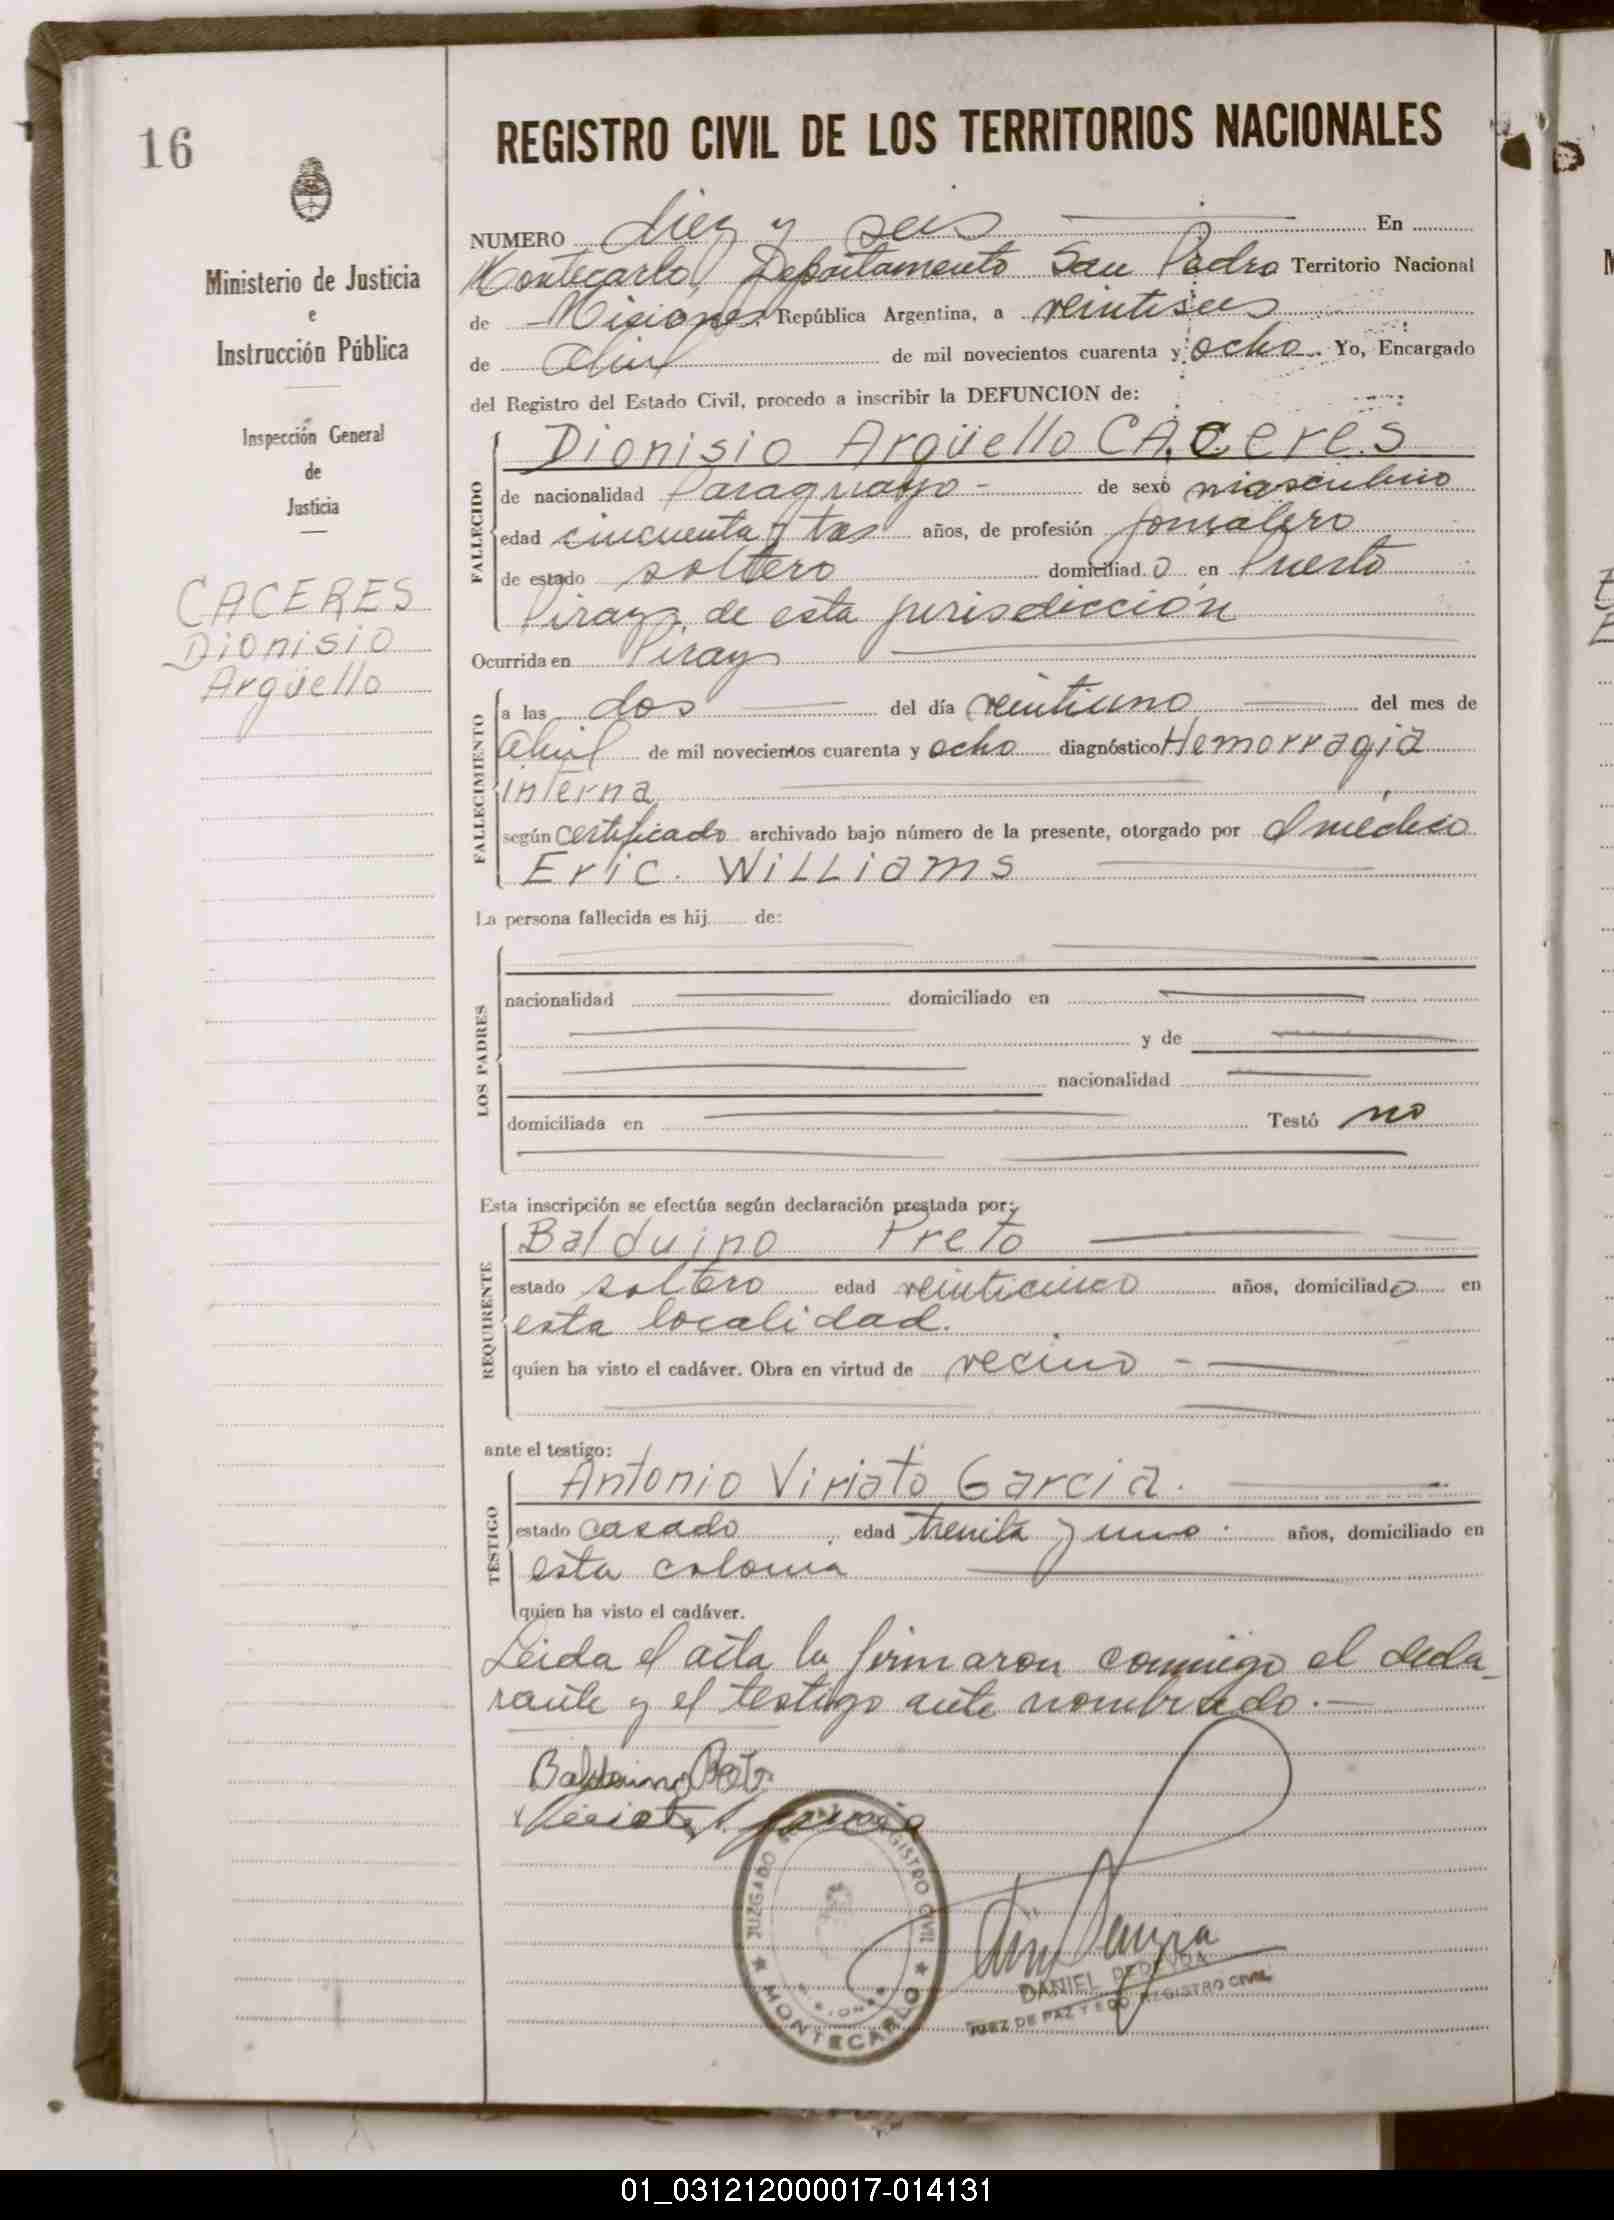 16
Ministerio de Justicia
e
Instrucción Pública
Inspección General
de
Justicia
CACERES
Dionisio
Argüello
REGISTRO CIVIL DE LOS TERRITORIOS NACIONALES
NUMERO diez y seis En
Montecarlo, Departamento San Pedro Territorio Nacional
de Misiones, República Argentina, a veintiseis
de abril de mil novecientos cuarenta y ocho. Yo, Encargado
del Registro del Estado Civil, procedo a inscribir la DEFUNCION de:
FALLECIDO
Dionisio Argüello CACeres
de nacionalidad Paraguayo - de sexo masculino
edad cincuenta y tres años, de profesión jornalero
de estado soltero domiciliad o en Puerto
Piray, de esta jurisdicción
Ocurrida en Piray
FALLECIMIENTO
a las dos del día veintiuno del mes de
abril de mil novecientos cuarenta y ocho diagnóstico Hemorragia
interna
según certificado archivado bajo número de la presente, otorgado por el médico
Eric. Williams
La persona fallecida es hij de:
LOS PADRES
nacionalidad domiciliado en
y de
nacionalidad
domiciliada en Testó no
Esta inscripción se efectúa según declaración prestada por:
REQUIRENTE
Balduino Preto
estado soltero edad veinticinco años, domiciliado en
esta localidad.
quien ha visto el cadáver. Obra en virtud de vecino -
ante el testigo:
TESTIGO
Antonio Viriato Garcia.
estado casado edad treinta y uno. años, domiciliado en
esta colonia
quien ha visto el cadáver.
Leida el acta la firmaron conmigo el decla-
rante y el testigo ante nombrado.-
Balduino Preto
Viriato Garcia
JUZGADO DE PAZ Y REGISTRO CIVIL
MISIONES
★ MONTECARLO ★
DANIEL
JUEZ DE PAZ Y EDO. REGISTRO CIVIL
01_031212000017-014131